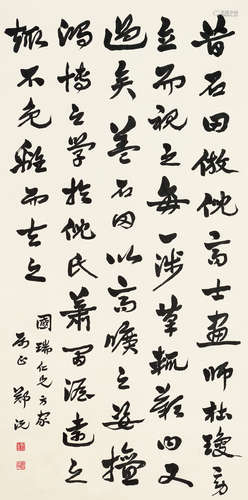 昔石田倣倪高士畫師杜瓊旁
立而視之每一涉筆輒歎曰又
過矣蓋石田以高曠之姿擅
鴻博之學於倪氏蕭閒澹遠之
趣不免離而去之
國瑞仁兄方家
屬正 鄭沅